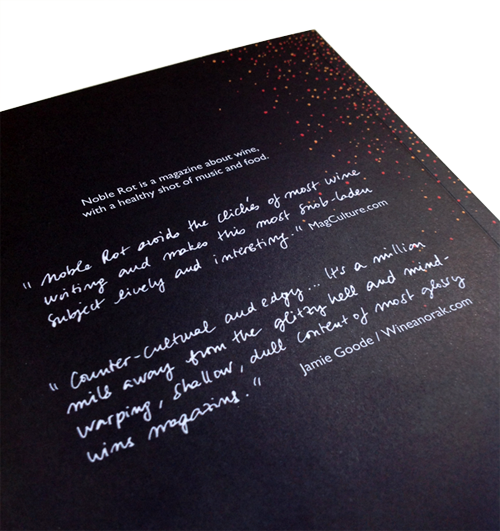 Noble Rot is a magazine about wine,
with a healthy shot of music and food.
" Noble Rot avoids the clichés of most wine
writing and makes this most snob-laden
subject lively and interesting." MagCulture.com
" Counter-cultural and edgy... It's a million
mils away from the glitzy hell and mind-
warping, shallow, dull content of most glossy
wins magazine."
Jamie Goode / Wineanorak.com